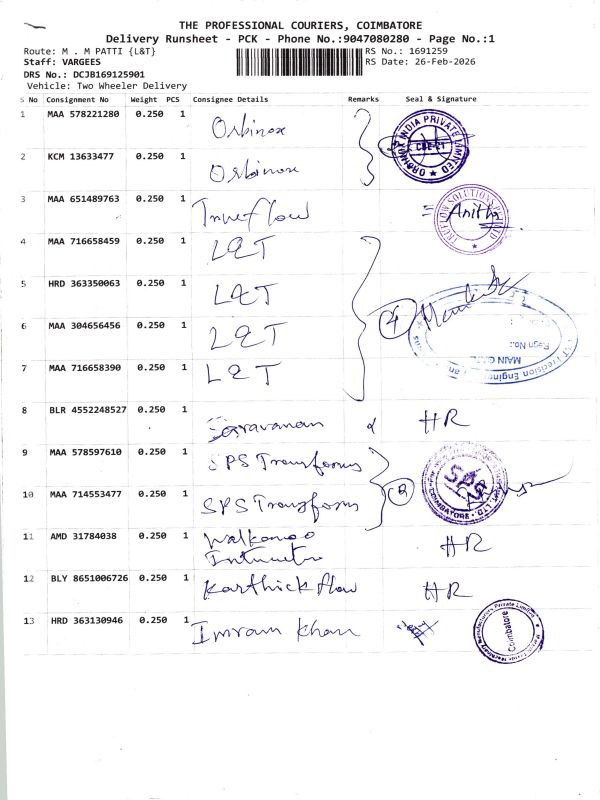 THE PROFESSIONAL COURIERS, COIMBATORE
Delivery Runsheet - PCK - Phone No.:9047080280 - Page No.:1
Route: M . M PATTI {L&T} RS No.: 1691259
Staff: VARGEES RS Date: 26-Feb-2026
DRS No.: DCJB169125901
Vehicle: Two Wheeler Delivery
S No Consignment No Weight PCS Consignee Details Remarks Seal & Signature
1 MAA 578221280 0.250 1 Orbinox
ORBINOX INDIA PRIVATE LIMITED
CBE-21
2 KCM 13633477 0.250 1 Orbinox
3 MAA 651489763 0.250 1 Trueflow = Anitha
4 MAA 716658459 0.250 1 L&T
5 HRD 363350063 0.250 1 L&T
4
6 MAA 304656456 0.250 1 L&T
Regn No.:
MAIN GATE
L&T Precision Engine
7 MAA 716658390 0.250 1 L&T
8 BLR 4552248527 0.250 1 Saravanan HR
9 MAA 578597610 0.250 1 SPS Transforms
SPS
COIMBATORE
10 MAA 714553477 0.250 1 SPS Transforms
11 AMD 31784038 0.250 1 HR
12 BLY 8651006726 0.250 1 Karthick flow HR
13 HRD 363130946 0.250 1 Imran Khan
Coimbatore